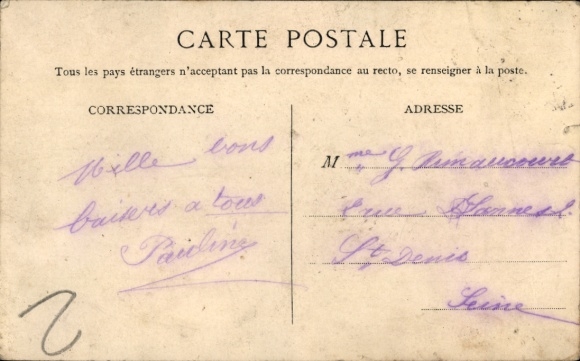 CARTE POSTALE
Tous les pays étrangers n'acceptent pas la correspondance au recto, se renseigner à la poste.
CORRESPONDANCE
Mille bons
baisers a tous
Pauline
ADRESSE
Mme G.
rue
St Denis
Seine
2